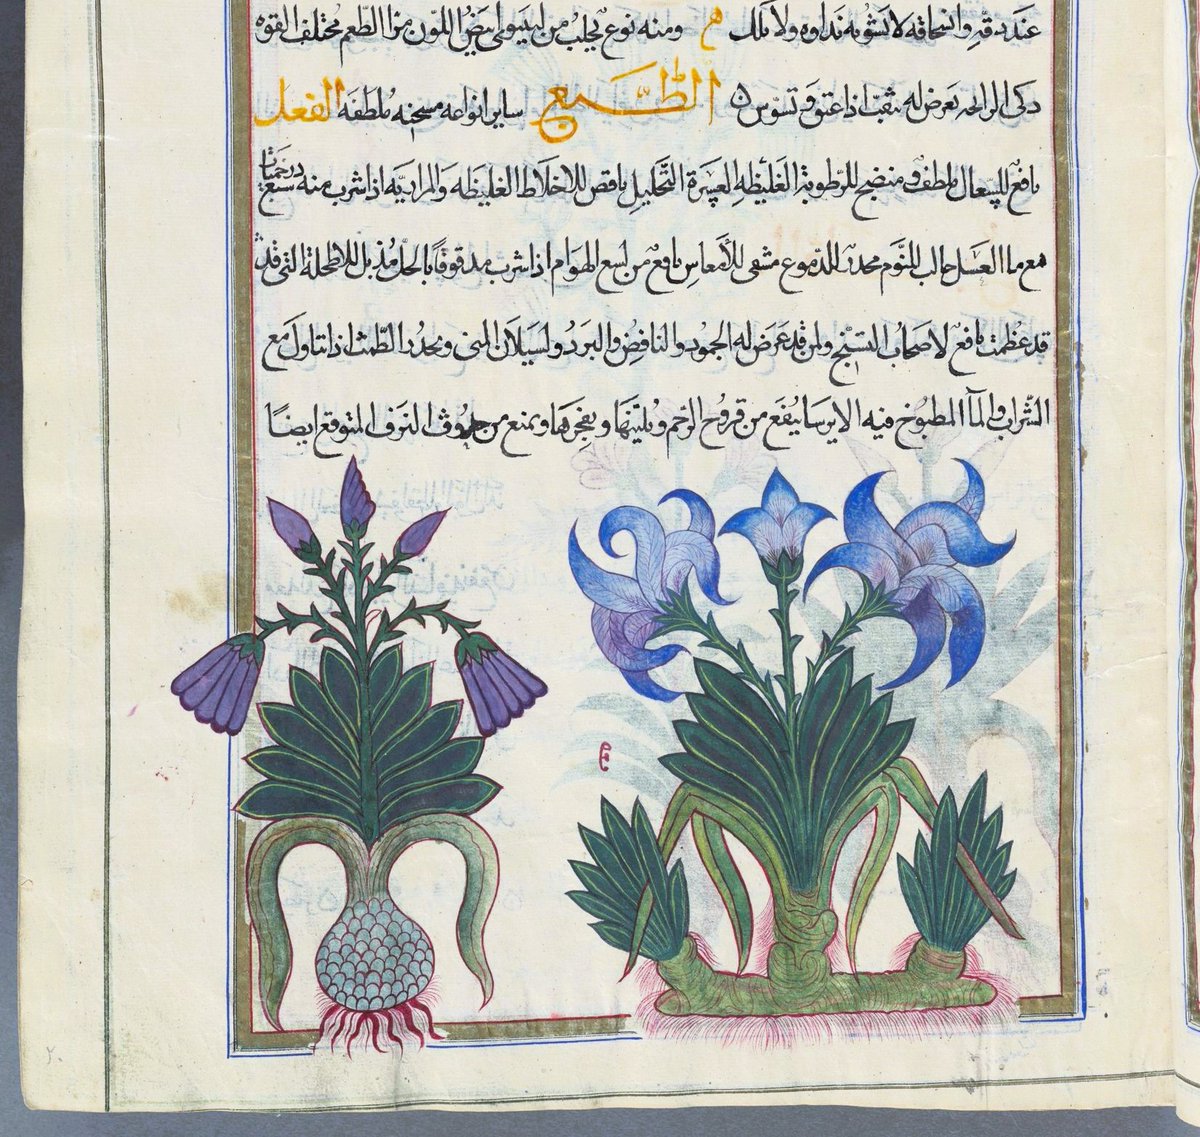 عند دقه وانسحاقه لا تشوبه نداوه ولا بلك م ومنه نوع يجلب من ليبيولي ابيض اللون من الطعم مختلف القوه
ذكي الرايحه يعرض له ثقب اذا عتق وتسوس ٥ الطبع ساير انواعه مسخنه ملطفه الفعل
نافع للسعال ملطف ومنضج للرطوبة الغليظه العسرة التحليل نافض للاخلاط الغليظه والمراريه اذا شرب منه سبع درخميات
مع ما العسل جالب للنوم محدر للدموع مشفى للأمغاس نافع من لسع الهوام اذا شرب مدقوقاً بالخل مذبل للاطحلة التي قد
قد عظمت نافع لاصحاب التشنج ولمن قد عرض له الجمود والنافض والبرد ولسيلان المنى ويحدر الطمث اذا تناول مع
الشراب والمآ المطبوخ فيه الايرسا ينفع من قروح الرحم ويلينها ويفجرها ويمنع من حدوث النزف المتوقع ايضاً
٢٠